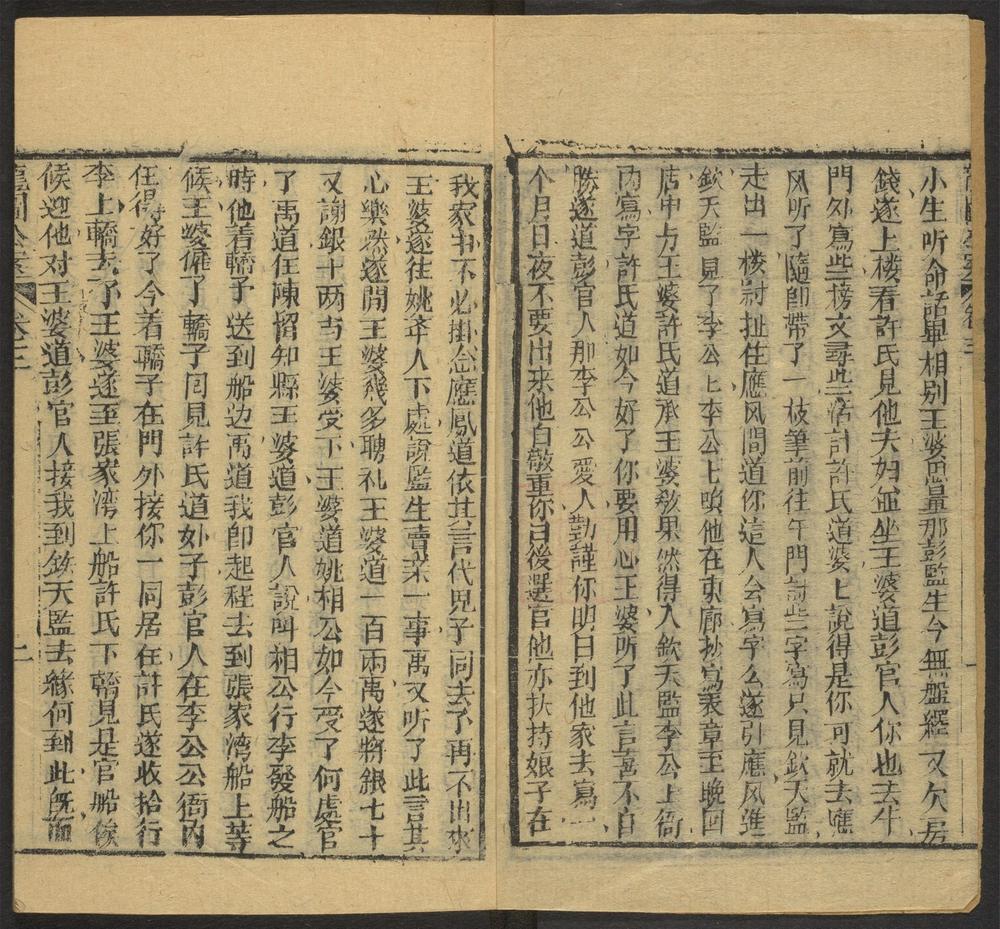 小生听命話畢相别王婆思量那彭監生今無盤纏又欠房
錢遂上楼看許氏見他夫妇並坐王婆道彭官人你也去午
門外寫些榜文尋些活計許氏道婆〻說得是你可就去應
风听了隨即带了一枝筆前往午門討些字寫只見欽天監
走出一校尉扯住應风問道你這人会寫字么遂引應风進
欽天監見了李公〻李公〻喚他在東廊抄寫表章至晚回
店中与王婆許氏道承王婆教果然得入欽天監李公上衙
內寫字許氏道如今好了你要用心王婆听了此言喜不自
勝遂道彭官人那李公公愛人勤謹你明日到他家去寫一
个月日夜不要出来他自敬重你日後選官他亦扶持娘子在
我家中不必掛念應鳳道依其言代児子同去了再不出來
王婆遂往姚舉人下處說監生賣桨一事禹又听了此言其
心樂然遂問王婆幾多聘礼王婆道一百兩禹遂將銀七十
又謝銀十两与王婆受下王婆道姚相公如今受了何處官
了禹道任陳留知縣王婆道彭官人說叫相公行李發船之
時他着轎子送到船边禹道我即起程去到張家湾船上等
候王婆僱了轎子囘見許氏道娘子彭官人在李公公衙內
住得好了今着轎子在門外接你一同居住許氏遂收拾行
李上轎去了王婆遂至張家湾上船許氏下轎見是官船候
候迎他对王婆道彭官人接我到欽天監去緣何到此旣而
龍圖公案
卷三
二